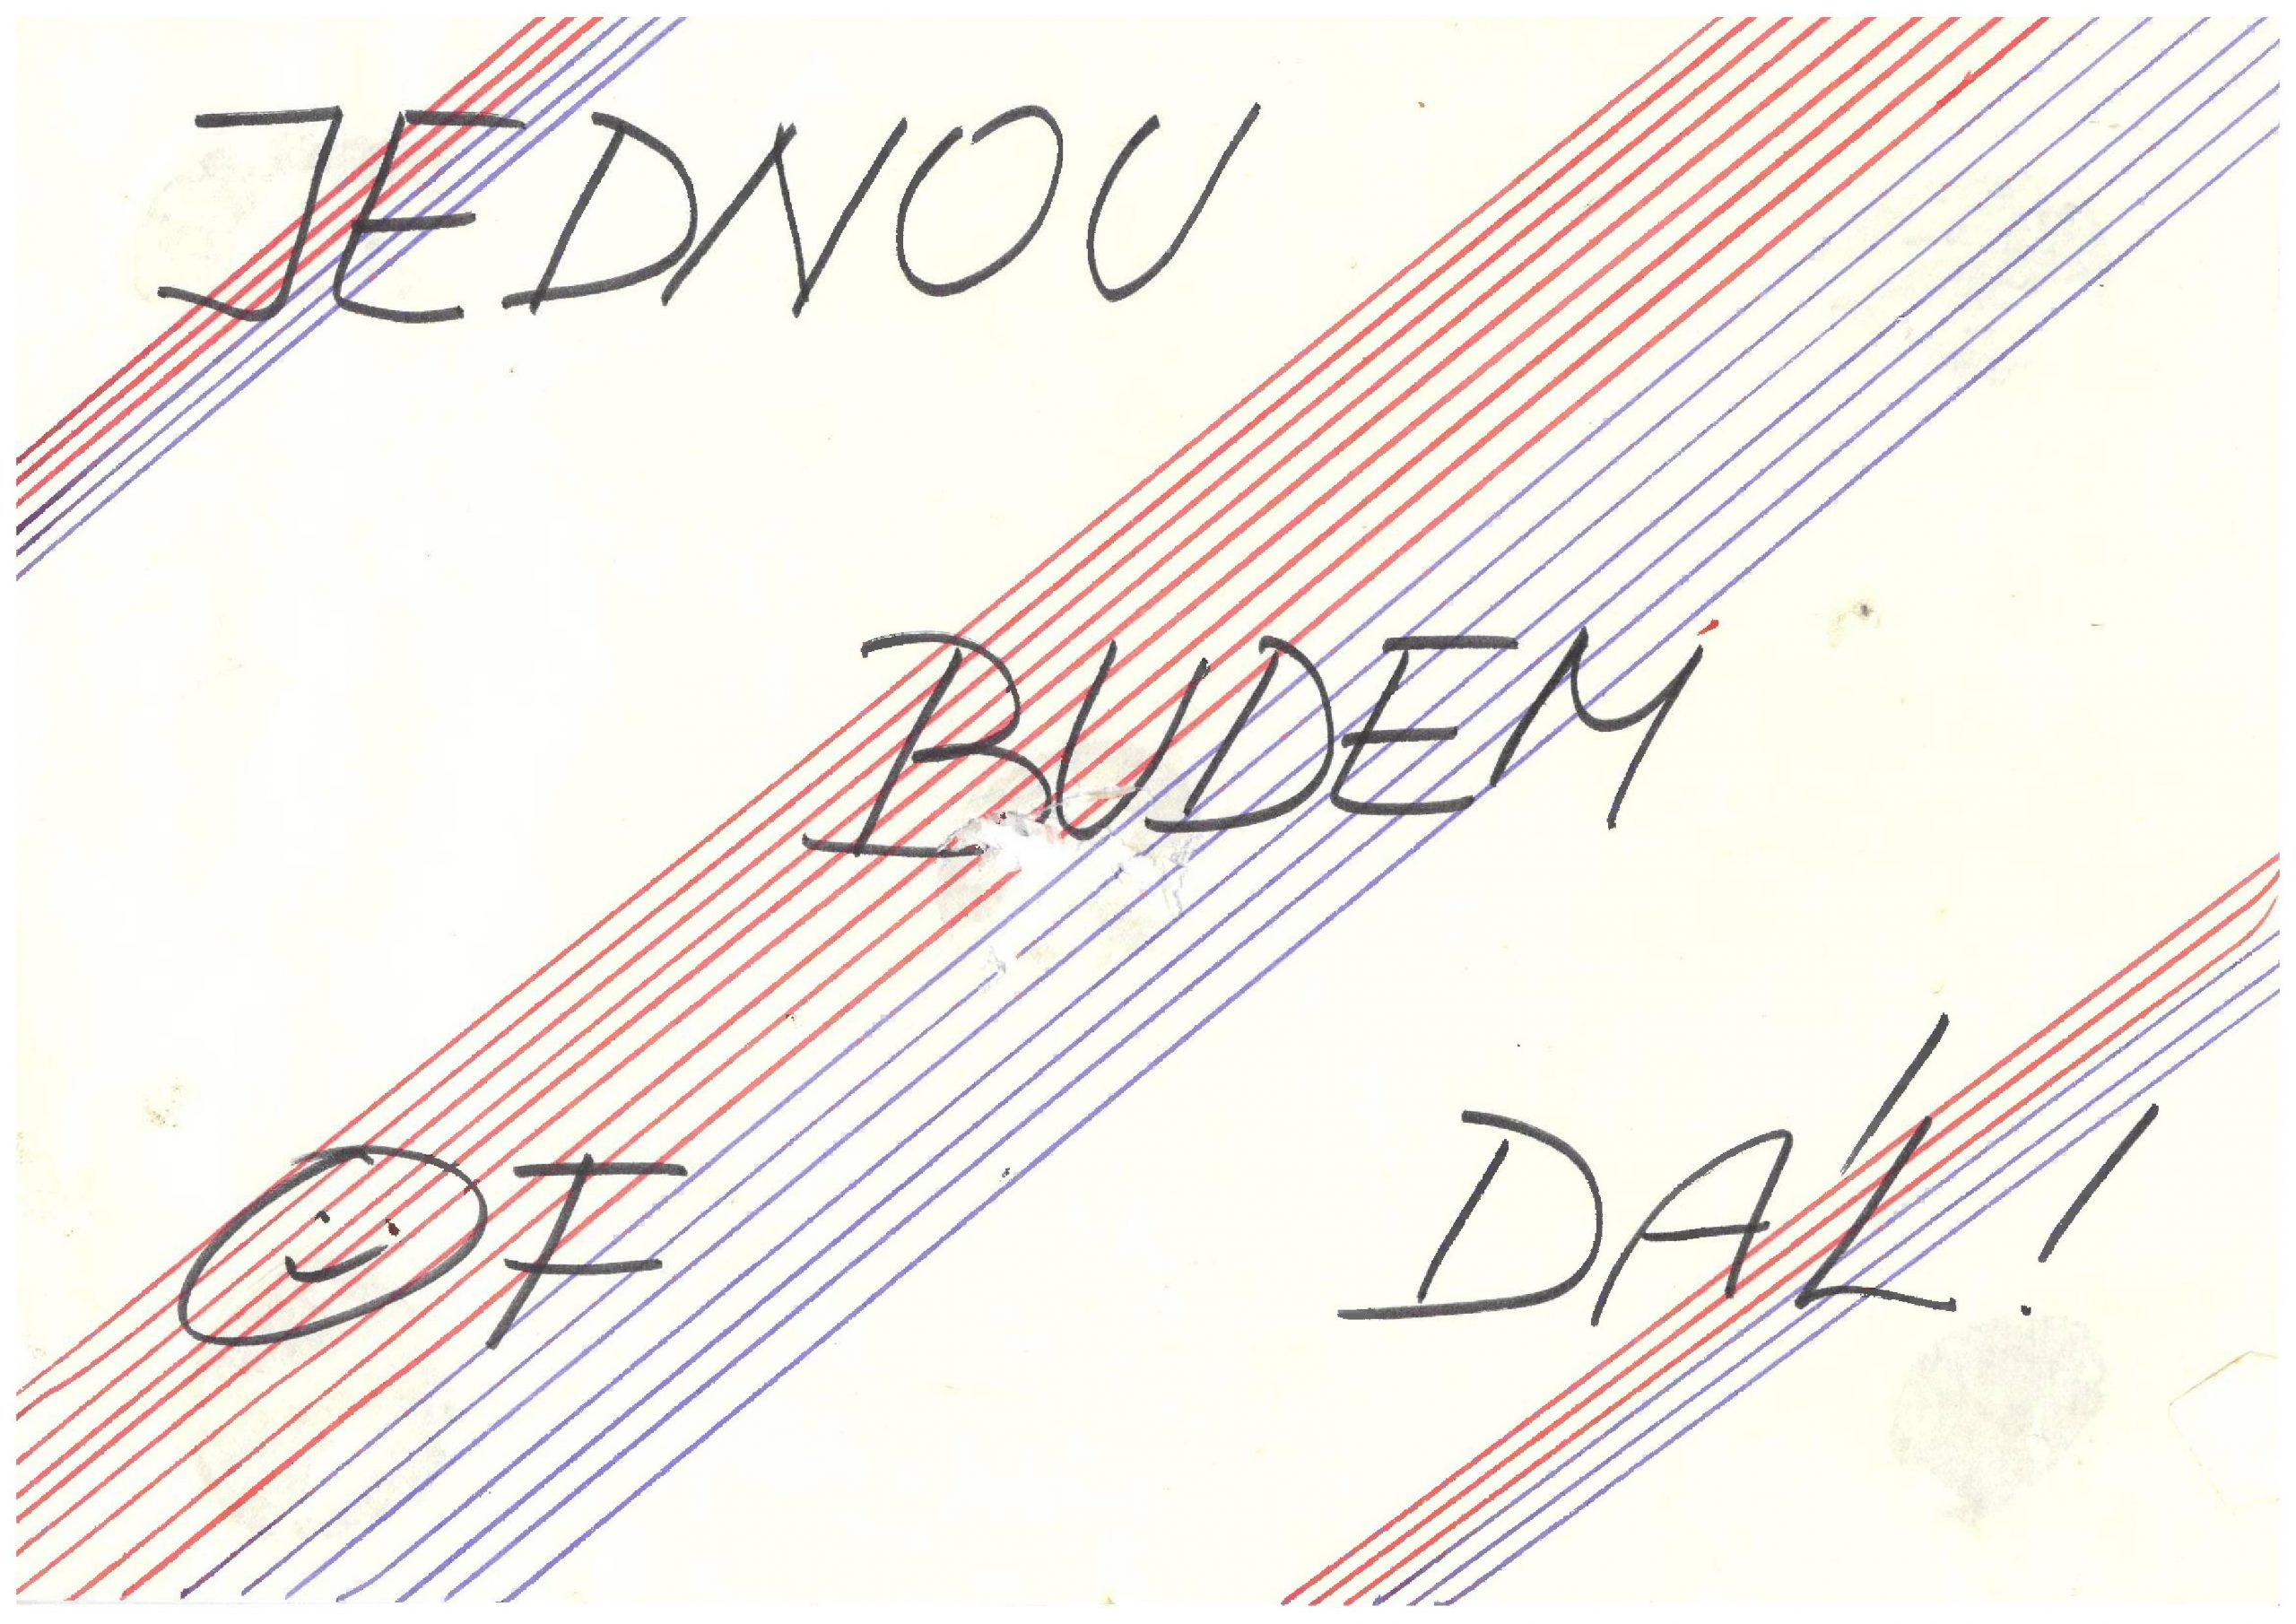 JEDNOU
BUDEM
DÁL!
OF